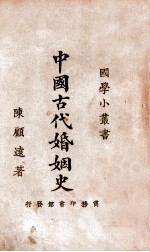 國學小叢書
中國古代婚姻史
陳顧遠著
商務印書館發行